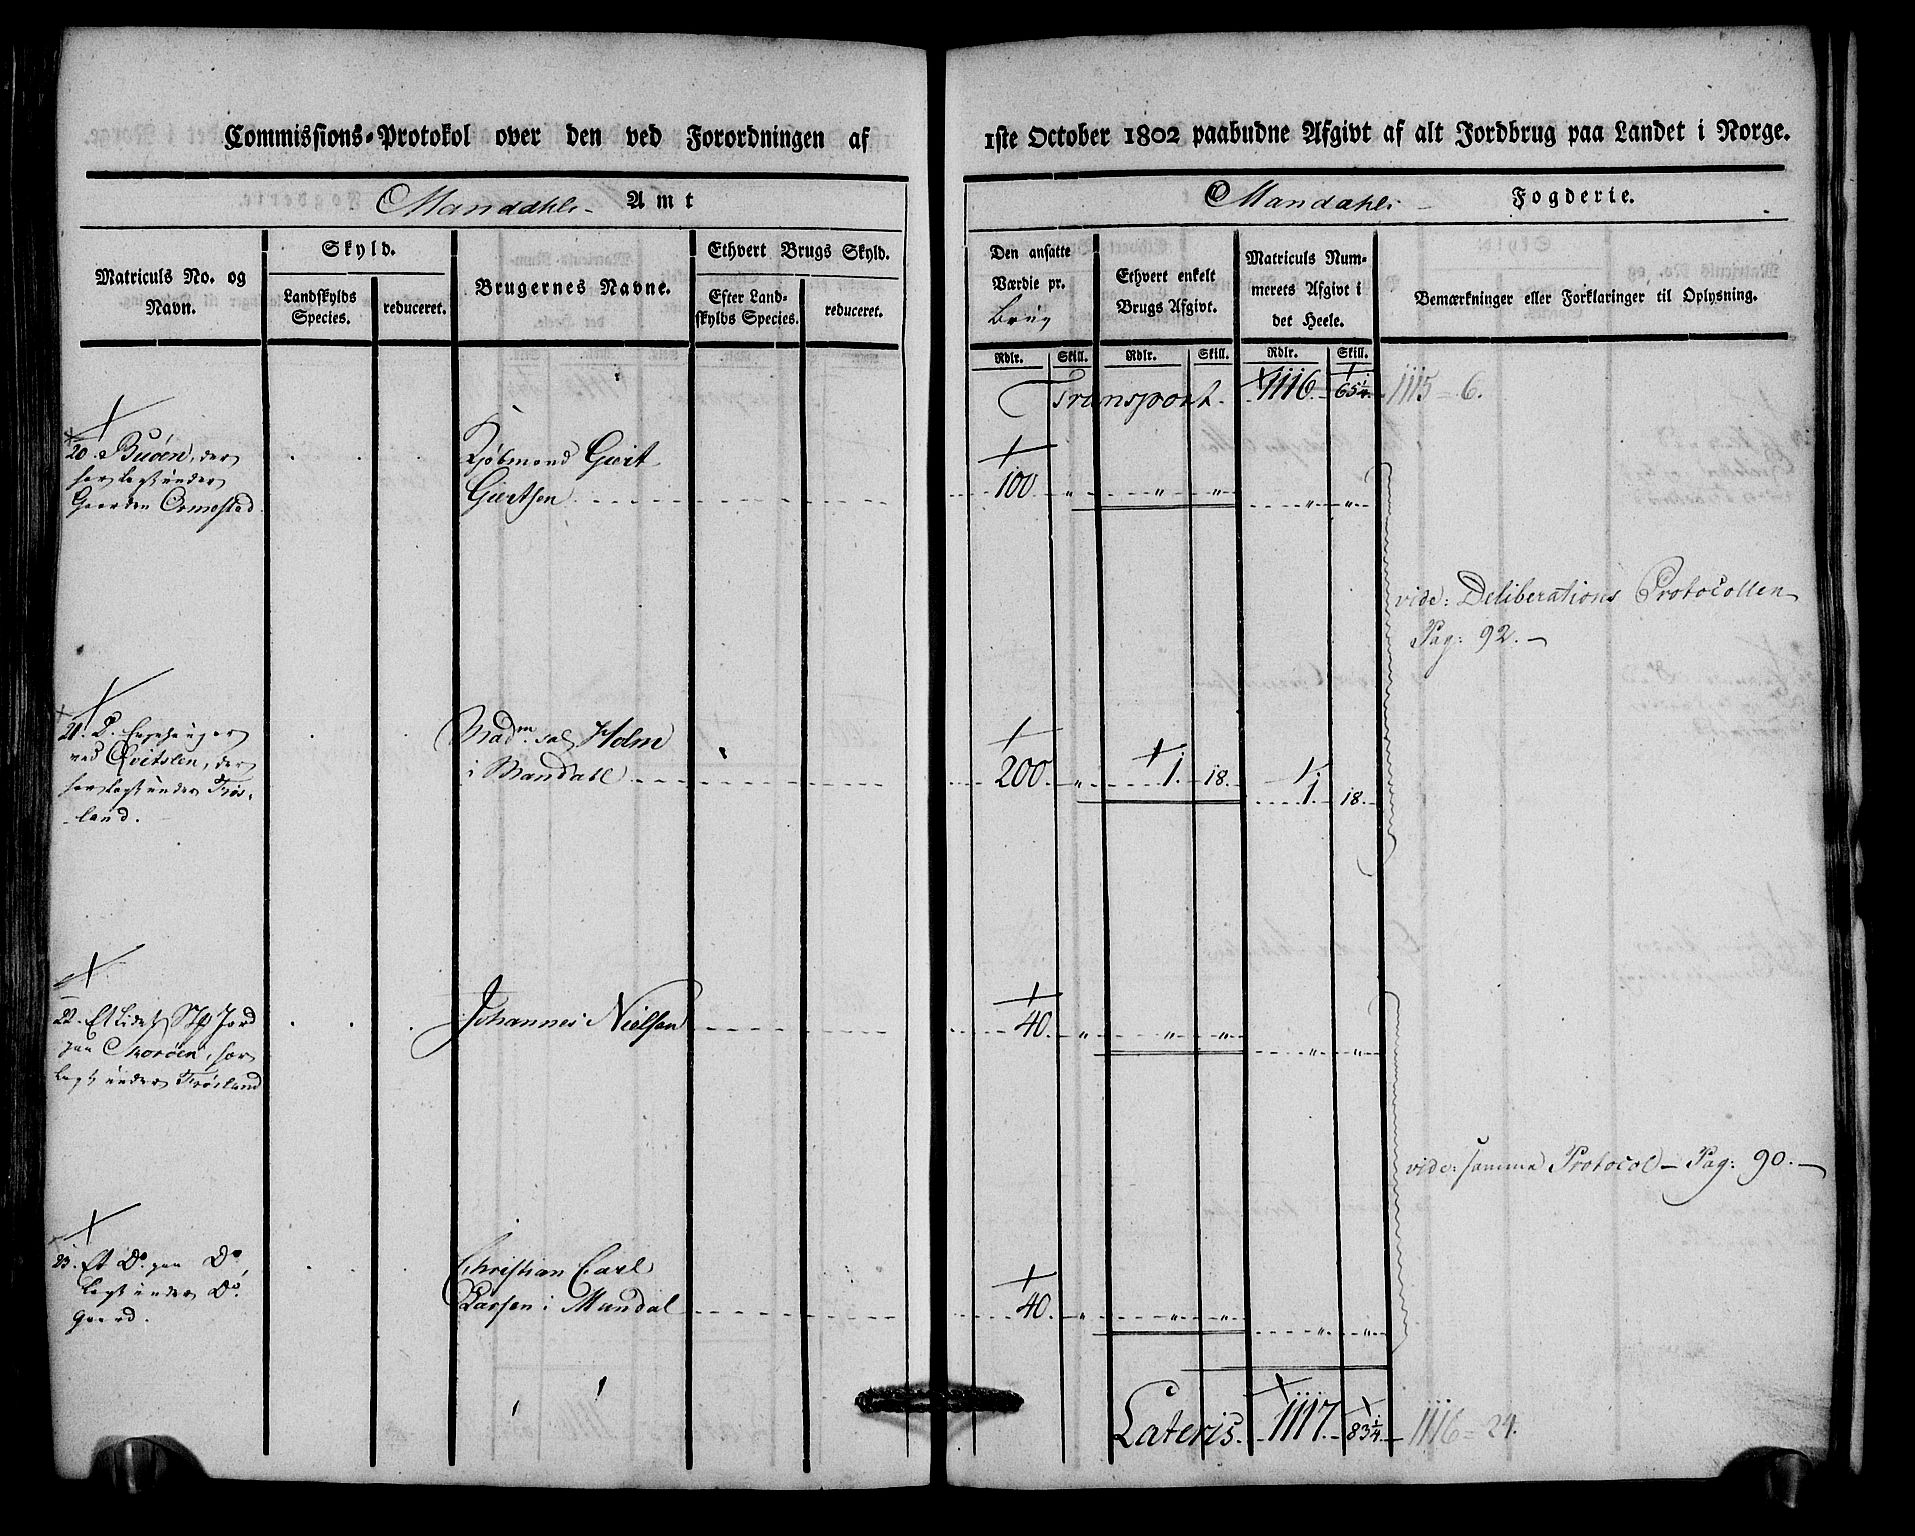 Commissions-Protokol over den ved Forordningen af
1ste October 1802 paabudne Afgivt af alt Jordbrug paa Landet i Norge.
Mandahls Amt
Mandahls Fogderie.
Matriculs No. og
Navn.
Skyld.
Landskylds
Species.
reduceret.
Brugernes Navne.
Ethvert Brugs Skyld.
Efter Land-
skylds Species.
reduceret.
Den ansatte
Værdie pr.
Brug
Ethvert enkelt
Brugs Afgivt.
Matriculs Num-
merets Afgivt i
det Heele.
Bemærkninger eller Forklaringer til Oplysning.
Rdlr. Skill. Rdlr. Skill. Rdlr. Skill.
Transport. 1116. 65 1/4. 1115 = 6.
20. Buöen, der
har Lagt under
Gaarden Ormestad
Kjöbmand Giert
Giertsen 100. " " " " "
vide: Deliberations Protocollen
Pag: 92.
21. D.
ved Qvitslen, der
har Lagt under Frös-
land.
Mad.m sal. Holm
i Mandahl 200. " 1. 18. 1. 18.
22. Et Lidet St. Jord
paa Skoröen, har
Lagt under Frösland
Johannes Nielsen 40. " " " " "
vide: samme Protocol Pag: 90.
23. Et Do. paa Do,
Lagt under Do.
Gaard.
Christian Carl
Larsen i Mandal 40. " " " " "
Lateris. 1117. 83 1/4. 1116 = 24.